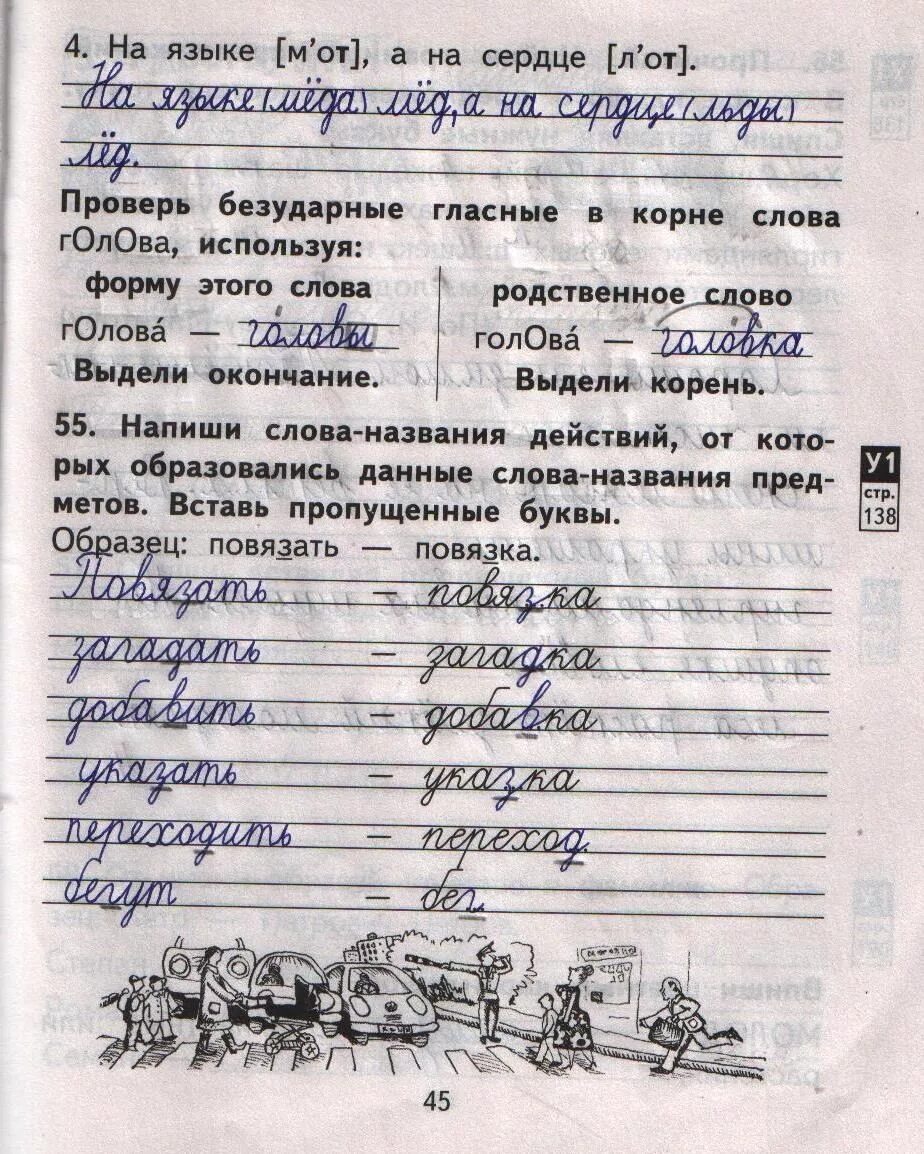 4. На языке [м’от], а на сердце [л’от].
На языке (мёда) мёд, а на сердце (льды)
лёд.
Проверь безударные гласные в корне слова
гОлОва, используя:
форму этого слова
гОлова́ — го́ловы
Выдели окончание.
родственное слово
голОва́ — голо́вка
Выдели корень.
55. Напиши слова-названия действий, от кото-
рых образовались данные слова-названия пред-
метов. Вставь пропущенные буквы.
Образец: повязать — повязка.
Повязать – повязка
загадать – загадка
добавить – добавка
указать – указка
переходить – переход.
бегут – бег.
У1
стр.
138
45